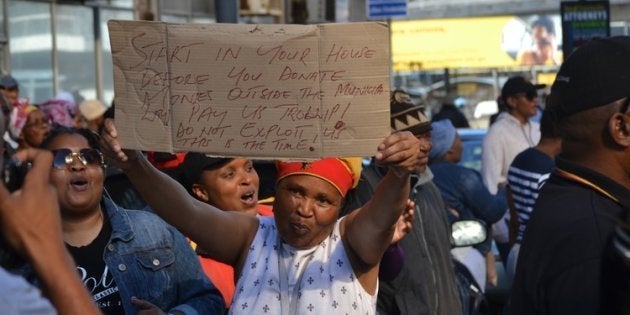 START IN YOUR HOUSE
BEFORE YOU DONATE
MONIES OUTSIDE THE MUNICIPA
LITY PAY US
DO NOT EXPLOIT US
THIS IS THE TIME.
ATTORNEYS